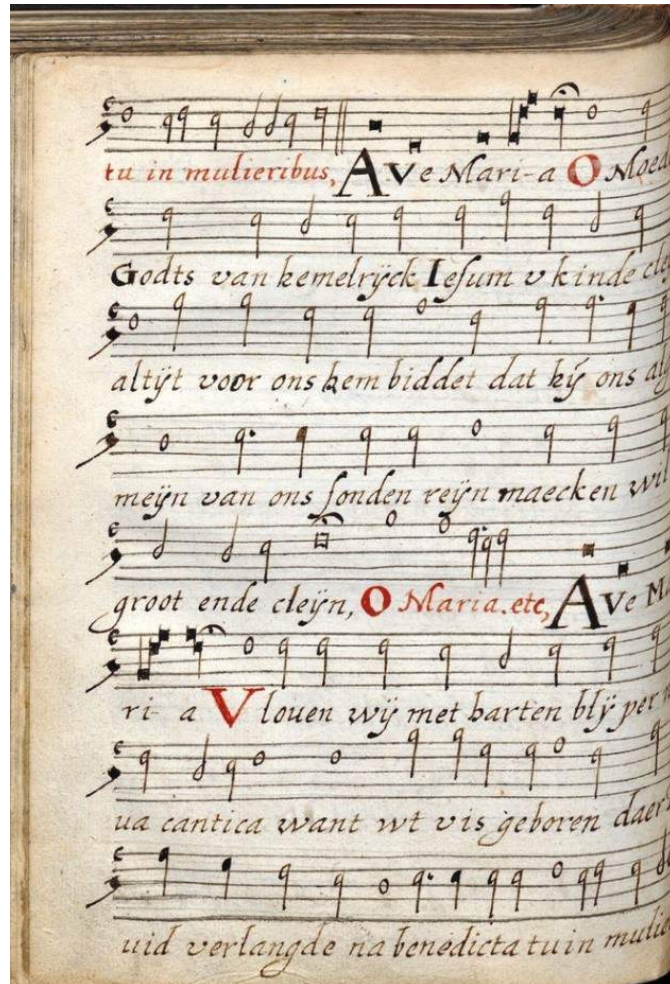 tu in mulieribus, Ave Mari-a O Moed
Godts van hemelrÿck Iesum v kinde cle
altÿt voor ons hem biddet dat hÿ ons al
meÿn van ons sonden reÿn maecken wil
groot ende cleÿn, O Maria. etc, Ave M
ri- a V louen wÿ met harten blÿ per
ua cantica want wt v is geboren daer
uid verlangde na benedicta tu in mulie